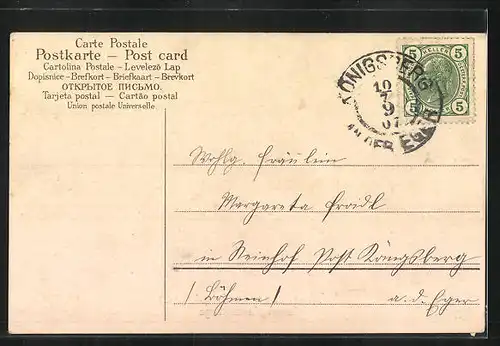 Carte Postale
Postkarte – Post card
Cartolina Postale – Levelező Lap
Dopisnice – Brefkort – Briefkaart – Brevkort
ОТКРЫТОЕ ПИСЬМО.
Tarjeta postal – Cartão postal
Union postale Universelle
5 HELLER 5
5 5
KÖNIGSBERG
AN DER EGER
Wohlg. Fräulein
Margareta Froidl
in Steinhof Post Köngsberg
/Böhmen/ a. d. Eger